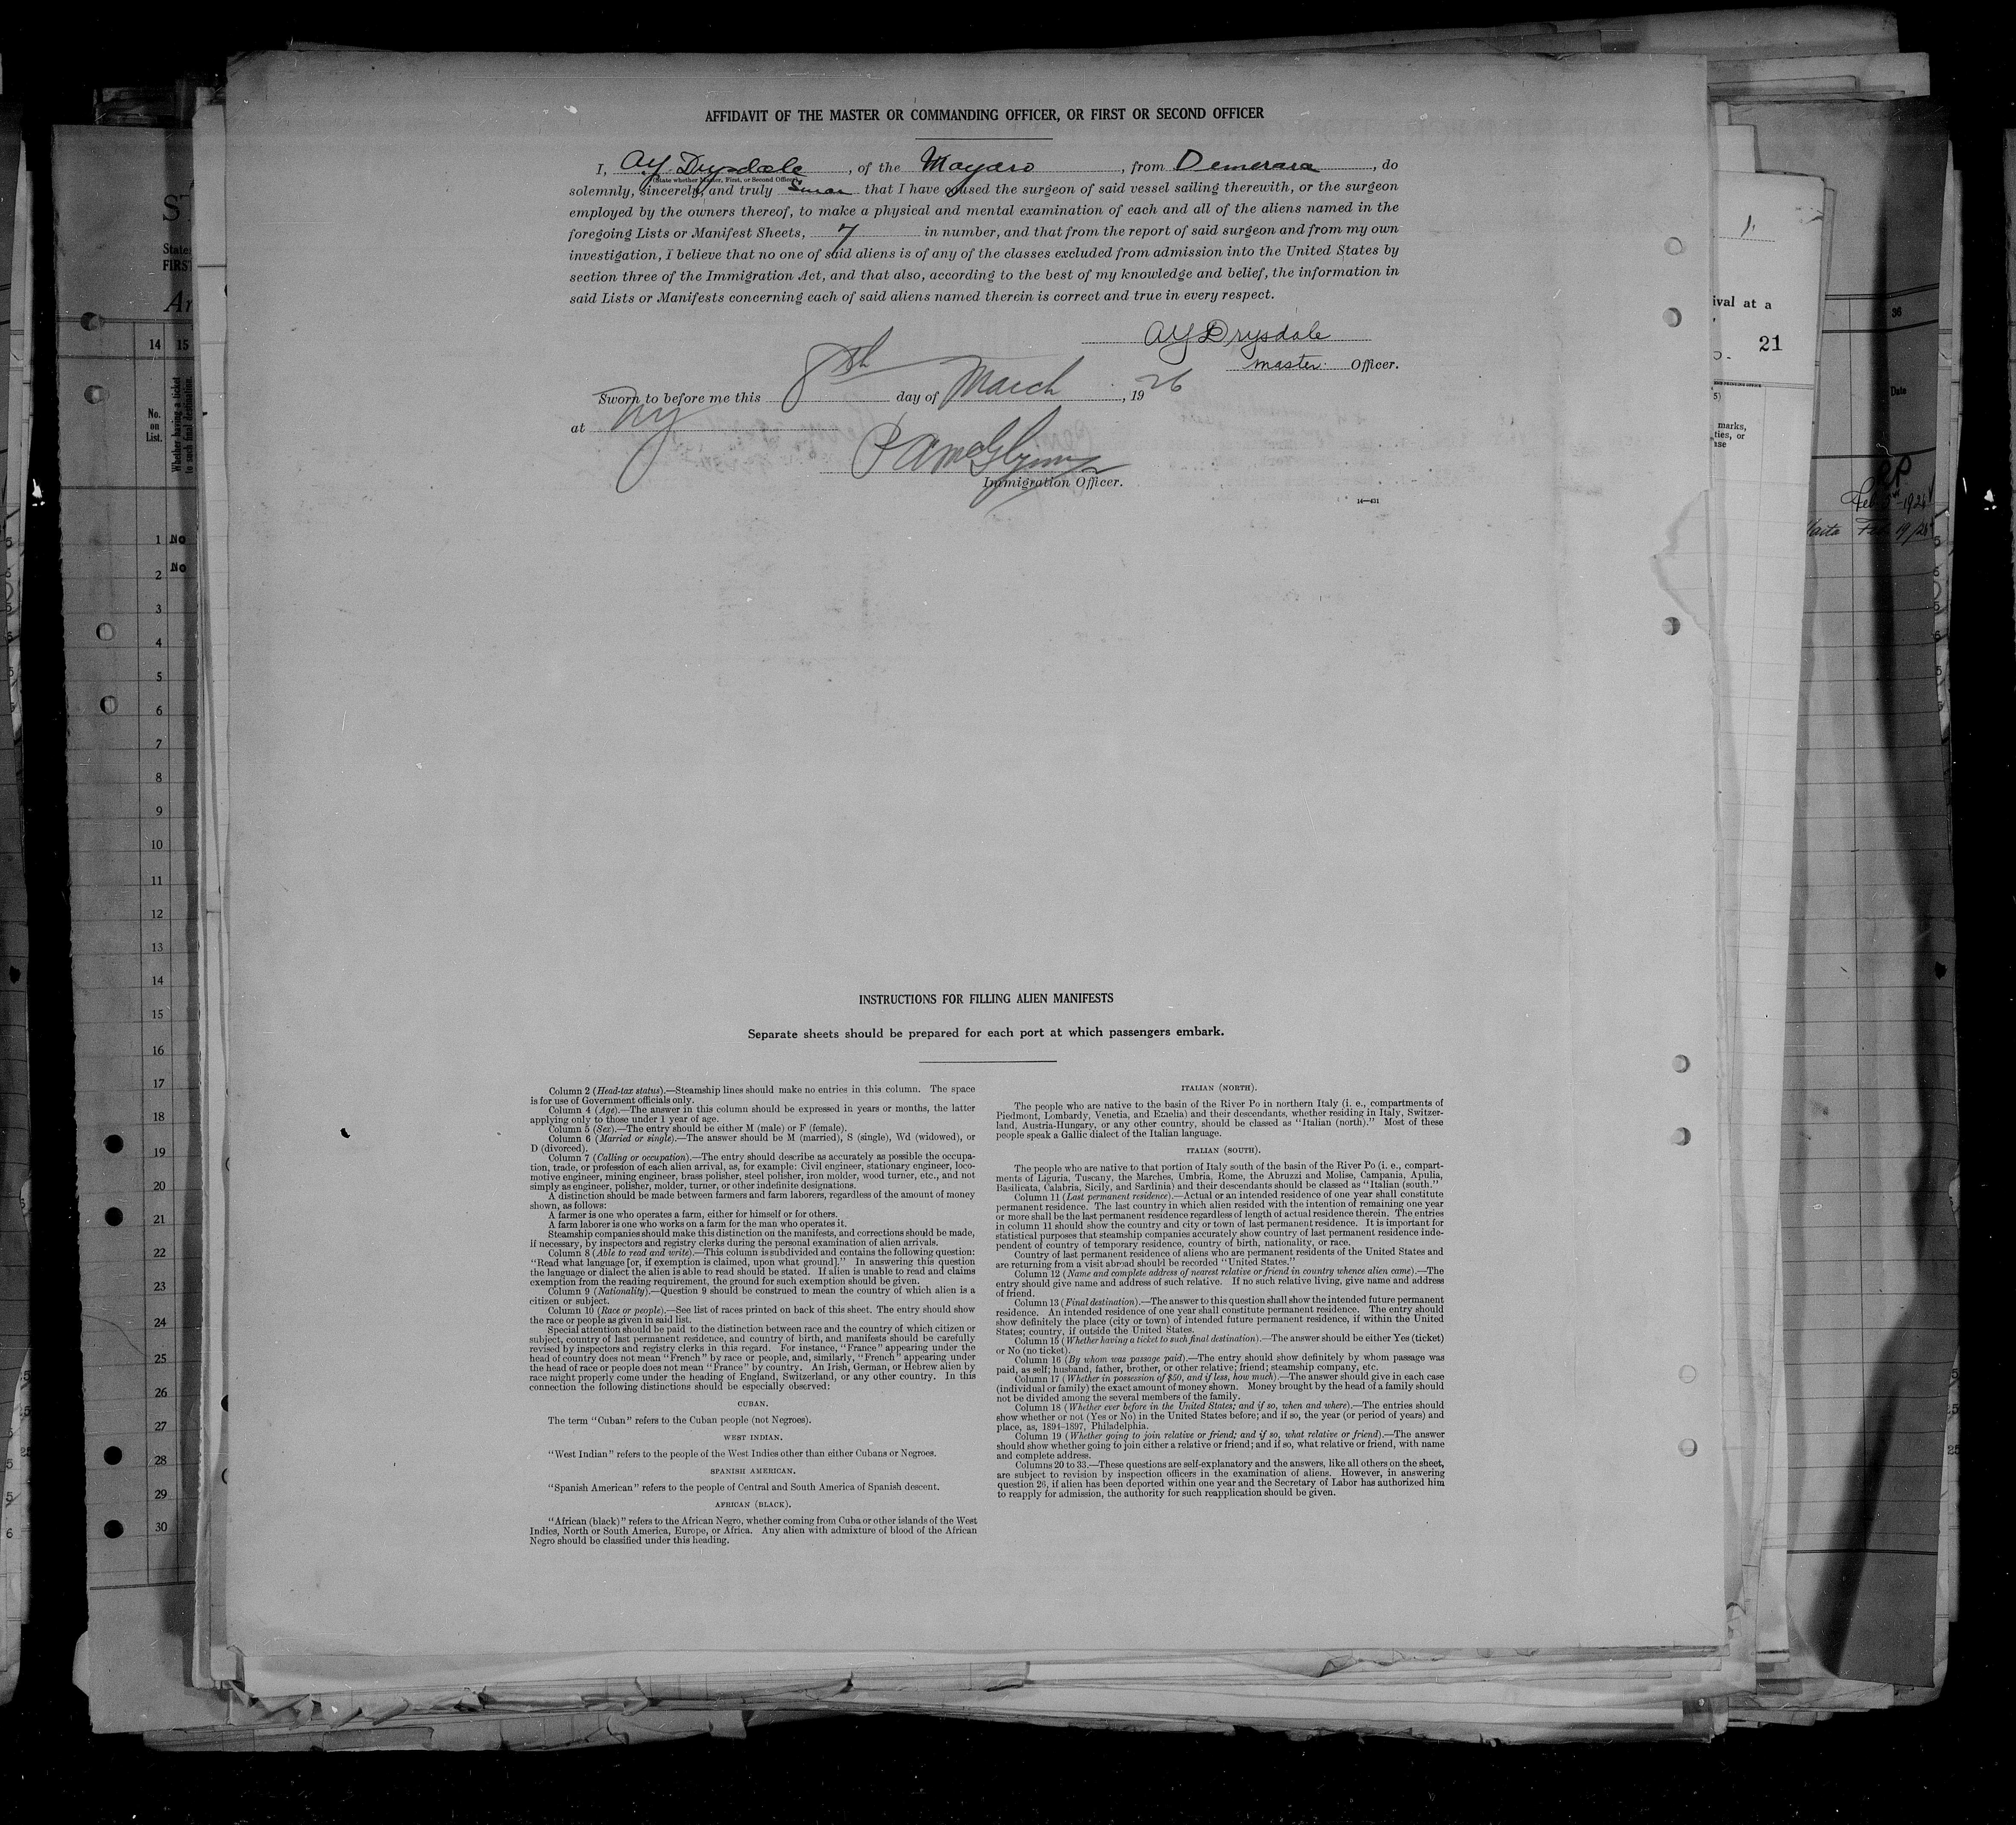 AFFIDAVIT OF THE MASTER OR COMMANDING OFFICER, OR FIRST OR SECOND OFFICER
I, A.Y. Drysdale, of the Mayaro, from Demerara, do
(State whether Master, First, or Second Officer)
solemnly, sincerely, and truly Swear that I have caused the surgeon of said vessel sailing therewith, or the surgeon
employed by the owners thereof, to make a physical and mental examination of each and all of the aliens named in the
foregoing Lists or Manifest Sheets, 7 in number, and that from the report of said surgeon and from my own
investigation, I believe that no one of said aliens is of any of the classes excluded from admission into the United States by
section three of the Immigration Act, and that also, according to the best of my knowledge and belief, the information in
said Lists or Manifests concerning each of said aliens named therein is correct and true in every respect.
AY Drysdale
master Officer.
Sworn to before me this 8th day of March, 1926
at NY
Immigration Officer.
14—431
INSTRUCTIONS FOR FILLING ALIEN MANIFESTS
Separate sheets should be prepared for each port at which passengers embark.
Column 2 (Head-tax status).—Steamship lines should make no entries in this column. The space
is for use of Government officials only.
Column 4 (Age).—The answer in this column should be expressed in years or months, the latter
applying only to those under 1 year of age.
Column 5 (Sex).—The entry should be either M (male) or F (female).
Column 6 (Married or single).—The answer should be M (married), S (single), Wd (widowed), or
D (divorced).
Column 7 (Calling or occupation).—The entry should describe as accurately as possible the occupa-
tion, trade, or profession of each alien arrival, as, for example: Civil engineer, stationary engineer, loco-
motive engineer, mining engineer, brass polisher, steel polisher, iron molder, wood turner, etc., and not
simply as engineer, polisher, molder, turner, or other indefinite designations.
A distinction should be made between farmers and farm laborers, regardless of the amount of money
shown, as follows:
A farmer is one who operates a farm, either for himself or for others.
A farm laborer is one who works on a farm for the man who operates it.
Steamship companies should make this distinction on the manifests, and corrections should be made,
if necessary, by inspectors and registry clerks during the personal examination of alien arrivals.
Column 8 (Able to read and write).—This column is subdivided and contains the following question:
"Read what language [or, if exemption is claimed, upon what ground]." In answering this question
the language or dialect the alien is able to read should be stated. If alien is unable to read and claims
exemption from the reading requirement, the ground for such exemption should be given.
Column 9 (Nationality).—Question 9 should be construed to mean the country of which alien is a
citizen or subject.
Column 10 (Race or people).—See list of races printed on back of this sheet. The entry should show
the race or people as given in said list.
Special attention should be paid to the distinction between race and the country of which citizen or
subject, country of last permanent residence, and country of birth, and manifests should be carefully
revised by inspectors and registry clerks in this regard. For instance, "France" appearing under the
head of country does not mean "French" by race or people, and, similarly, "French" appearing under
the head of race or people does not mean "France" by country. An Irish, German, or Hebrew alien by
race might properly come under the heading of England, Switzerland, or any other country. In this
connection the following distinctions should be especially observed:
CUBAN.
The term "Cuban" refers to the Cuban people (not Negroes).
WEST INDIAN.
"West Indian" refers to the people of the West Indies other than either Cubans or Negroes.
SPANISH AMERICAN.
"Spanish American" refers to the people of Central and South America of Spanish descent.
AFRICAN (BLACK).
"African (black)" refers to the African Negro, whether coming from Cuba or other islands of the West
Indies, North or South America, Europe, or Africa. Any alien with admixture of blood of the African
Negro should be classified under this heading.
ITALIAN (NORTH).
The people who are native to the basin of the River Po in northern Italy (i. e., compartments of
Piedmont, Lombardy, Venetia, and Emelia) and their descendants, whether residing in Italy, Switzer-
land, Austria-Hungary, or any other country, should be classed as "Italian (north)." Most of these
people speak a Gallic dialect of the Italian language.
ITALIAN (SOUTH).
The people who are native to that portion of Italy south of the basin of the River Po (i. e., compart-
ments of Liguria, Tuscany, the Marches, Umbria, Rome, the Abruzzi and Molise, Campania, Apulia,
Basilicata, Calabria, Sicily, and Sardinia) and their descendants should be classed as "Italian (south."
Column 11 (Last permanent residence).—Actual or an intended residence of one year shall constitute
permanent residence. The last country in which alien resided with the intention of remaining one year
or more shall be the last permanent residence regardless of length of actual residence therein. The entries
in column 11 should show the country and city or town of last permanent residence. It is important for
statistical purposes that steamship companies accurately show country of last permanent residence inde-
pendent of country of temporary residence, country of birth, nationality, or race.
Country of last permanent residence of aliens who are permanent residents of the United States and
are returning from a visit abroad should be recorded "United States."
Column 12 (Name and complete address of nearest relative or friend in country whence alien came).—The
entry should give name and address of such relative. If no such relative living, give name and address
of friend.
Column 13 (Final destination).—The answer to this question shall show the intended future permanent
residence. An intended residence of one year shall constitute permanent residence. The entry should
show definitely the place (city or town) of intended future permanent residence, if within the United
States; country, if outside the United States.
Column 15 (Whether having a ticket to such final destination).—The answer should be either Yes (ticket)
or No (no ticket).
Column 16 (By whom was passage paid).—The entry should show definitely by whom passage was
paid, as self; husband, father, brother, or other relative; friend; steamship company, etc.
Column 17 (Whether in possession of $50, and if less, how much).—The answer should give in each case
(individual or family) the exact amount of money shown. Money brought by the head of a family should
not be divided among the several members of the family.
Column 18 (Whether ever before in the United States; and if so, when and where).—The entries should
show whether or not (Yes or No) in the United States before; and if so, the year (or period of years) and
place, as, 1894–1897, Philadelphia.
Column 19 (Whether going to join relative or friend; and if so, what relative or friend).—The answer
should show whether going to join either a relative or friend; and if so, what relative or friend, with name
and complete address.
Columns 20 to 33.—These questions are self-explanatory and the answers, like all others on the sheet,
are subject to revision by inspection officers in the examination of aliens. However, in answering
question 26, if alien has been deported within one year and the Secretary of Labor has authorized him
to reapply for admission, the authority for such reapplication should be given.
State
FIRST
14 15
No.
on
List.
Whether having a ticket
to such final destination.
1 No
2 No
3
4
5
6
7
8
9
10
11
12
13
14
15
16
17
18
19
20
21
22
23
24
25
26
27
28
29
30
ival at a
21
marks,
ties, or
36
Date